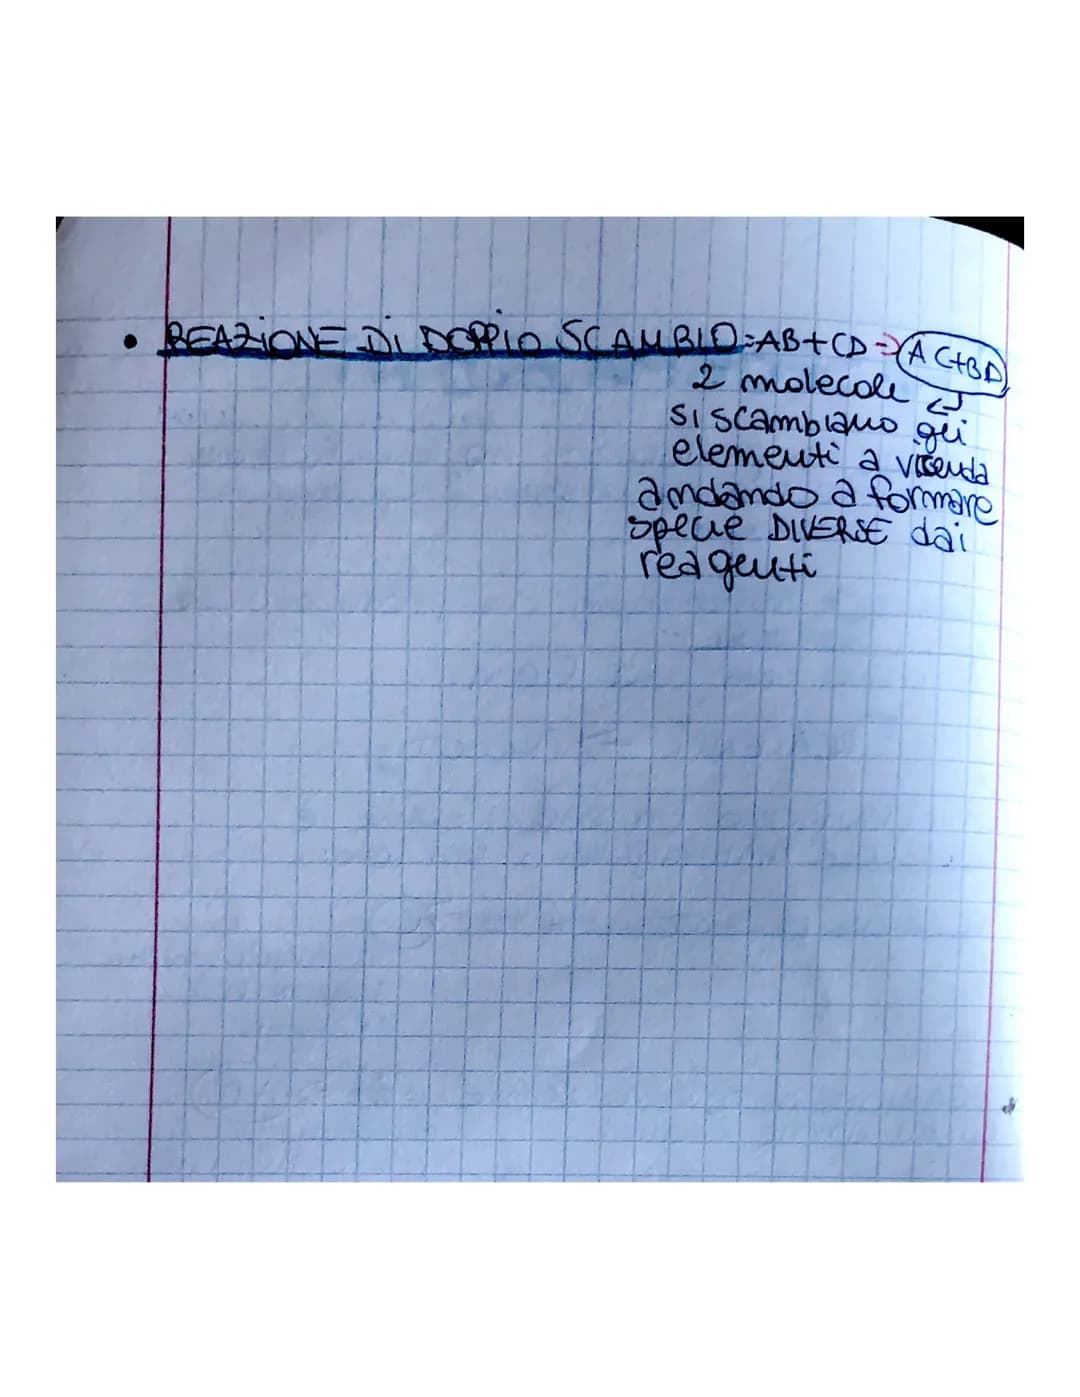 • REAZIONE DI DOPPIO SCAMBIO=AB+CD→AC+BD
2 molecole
si scambiano gli
elementi a vicenda
andando a formare
specie DIVERSE dai
reagenti